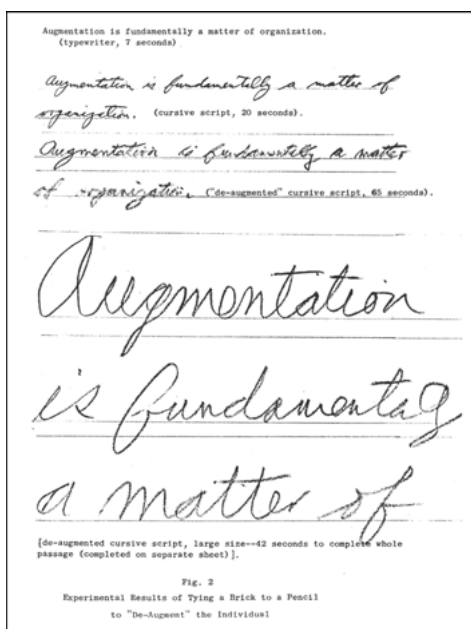 Augmentation is fundamentally a matter of organization.
(typewriter, 7 seconds)
Augmentation is fundamentally a matter of
organization. (cursive script, 20 seconds).
Augmentation is fundamentally a matter
of organization. ("de-augmented" cursive script, 65 seconds).
Augmentation
is fundamentally
a matter of
[de-augmented cursive script, large size--42 seconds to complete whole
passage (completed on separate sheet)].
Fig. 2
Experimental Results of Tying a Brick to a Pencil
to "De-Augment" the Individual